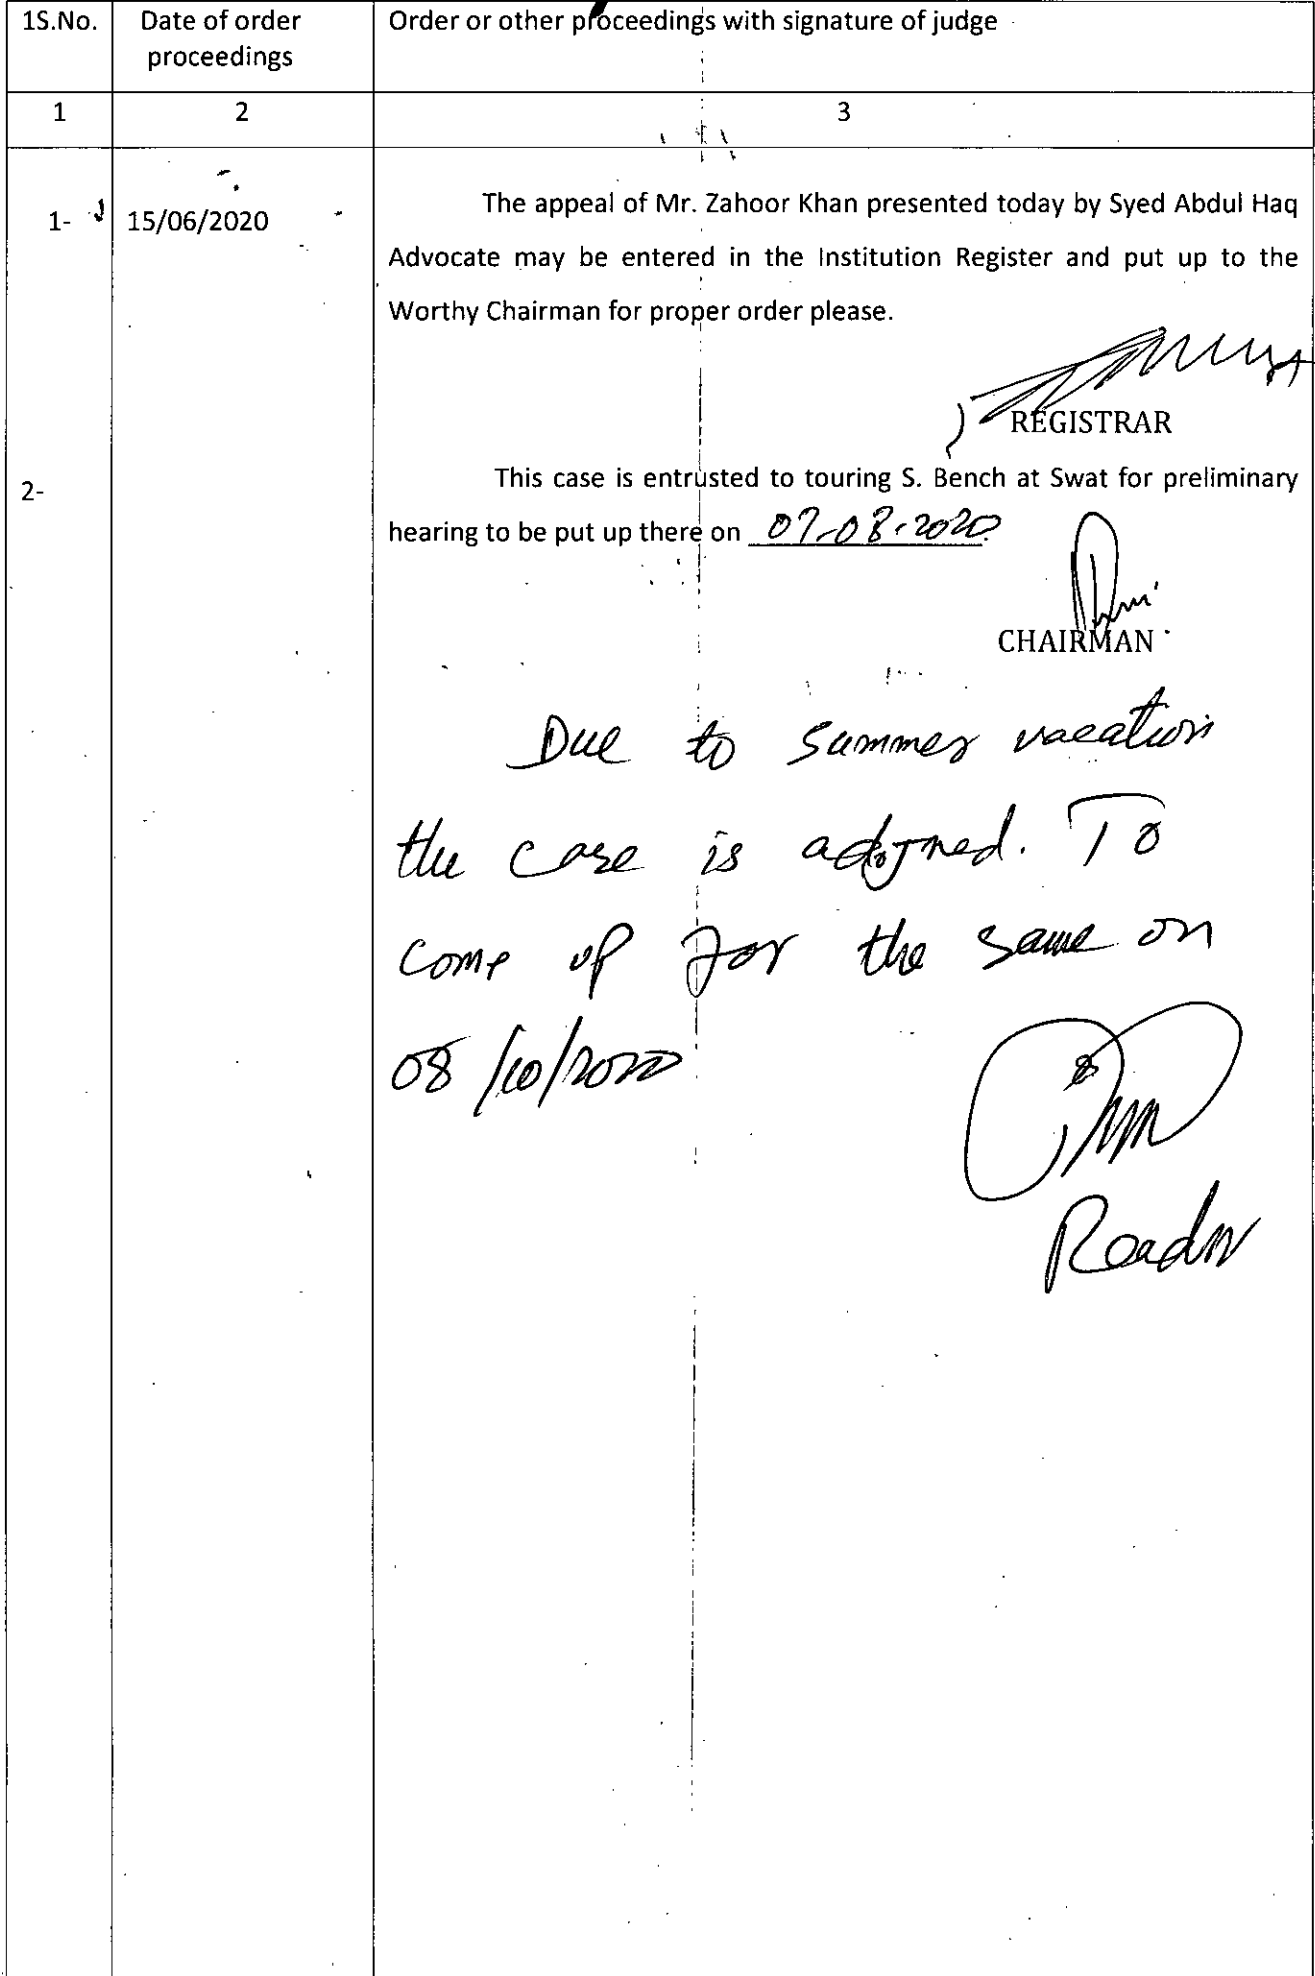 1S.No.
Date of order
proceedings
Order or other proceedings with signature of judge
1
2
3
1-
15/06/2020
The appeal of Mr. Zahoor Khan presented today by Syed Abdul Haq
Advocate may be entered in the Institution Register and put up to the
Worthy Chairman for proper order please.
REGISTRAR
2-
This case is entrusted to touring S. Bench at Swat for preliminary
hearing to be put up there on 07-08-2020
CHAIRMAN
Due to summer vacation
the case is adojrned. To
come up for the same on
08/10/2020
Reader